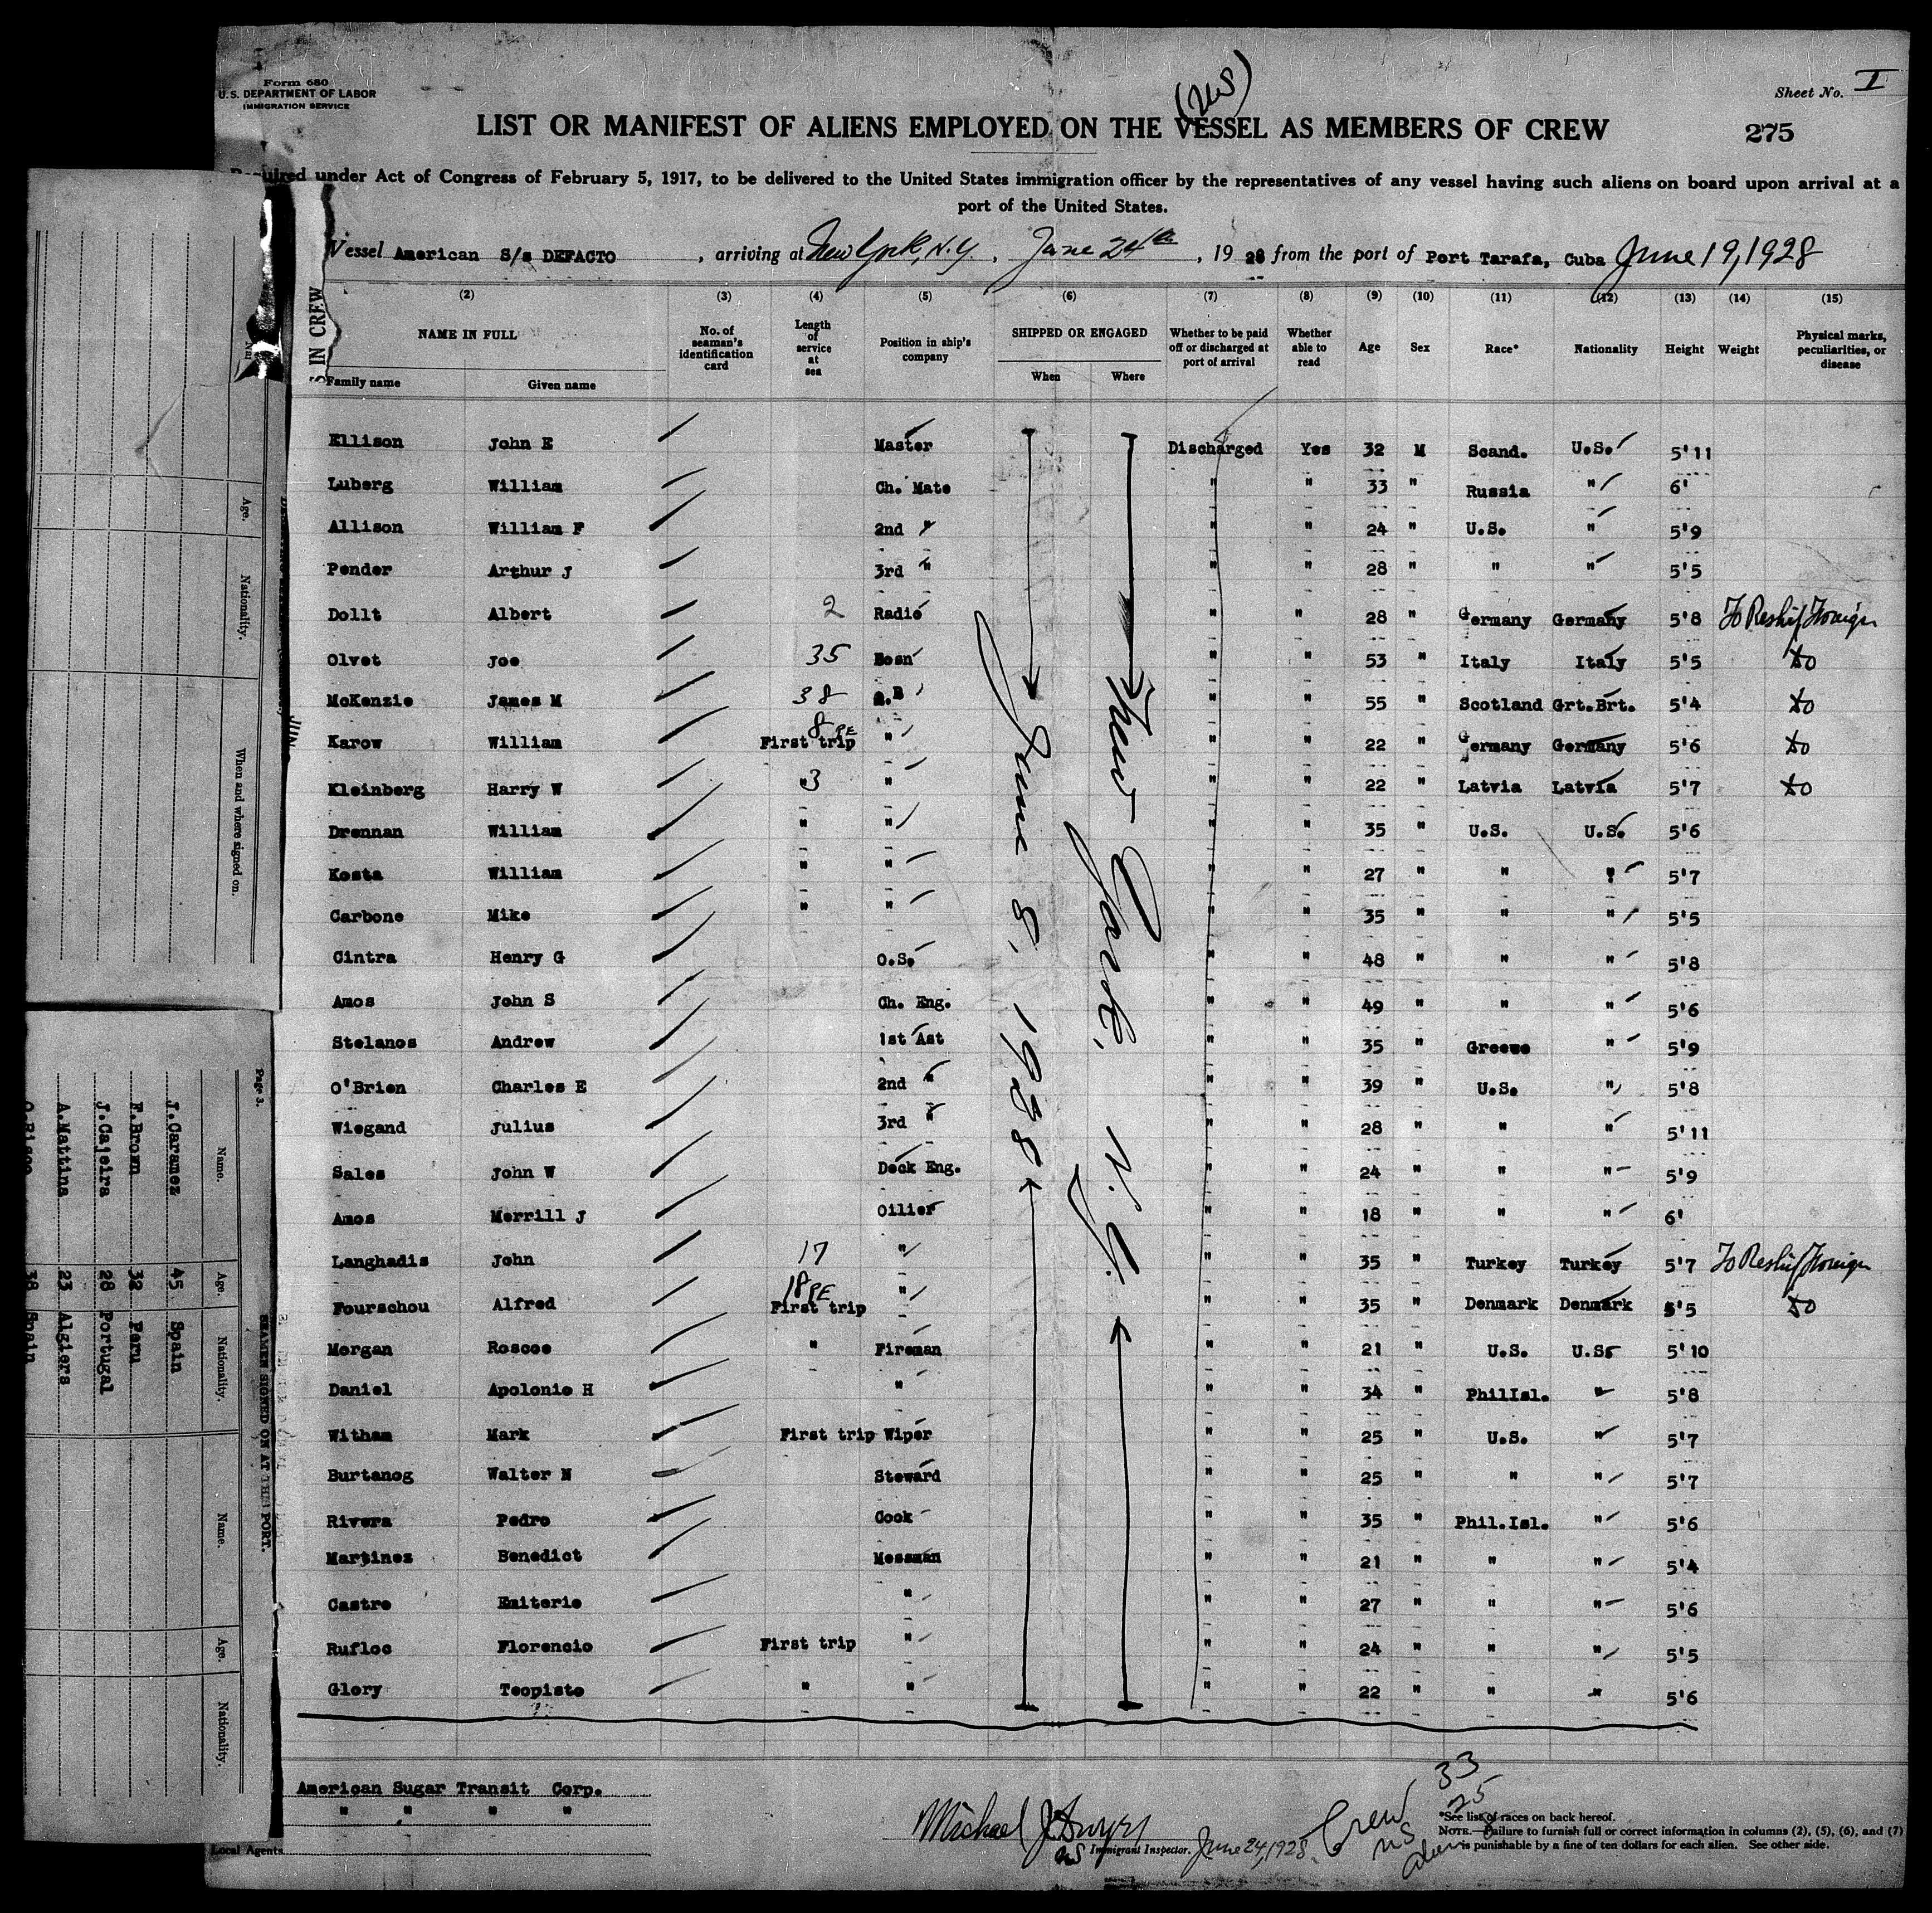 Form 680
U.S. DEPARTMENT OF LABOR
IMMIGRATION SERVICE
Sheet No. I
(us)
LIST OR MANIFEST OF ALIENS EMPLOYED ON THE VESSEL AS MEMBERS OF CREW
275
Required under Act of Congress of February 5, 1917, to be delivered to the United States immigration officer by the representatives of any vessel having such aliens on board upon arrival at a
port of the United States.
Vessel American S/s DEFACTO, arriving at New York, N.Y., June 24th, 1928 from the port of Port Tarafa, Cuba June 19, 1928
(2) (3) (4) (5) (6) (7) (8) (9) (10) (11) (12) (13) (14) (15)
NAME IN FULL
Family name Given name
No. of seaman's identification card
Length of service at sea
Position in ship's company
SHIPPED OR ENGAGED
When Where
Whether to be paid off or discharged at port of arrival
Whether able to read
Age
Sex
Race*
Nationality
Height
Weight
Physical marks, peculiarities, or disease
IN CREW
Ellison John E Master Discharged Yes 32 M Scand. U.S. 5'11
Luberg William Ch. Mate " " 33 " Russia " 6'
Allison William F 2nd " " " 24 " U.S. " 5'9
Pender Arthur J 3rd " " " 28 " " " 5'5
Dollt Albert 2 Radio " " 28 " Germany Germany 5'8 To Reship Foreign
Olvet Joe 35 Bosn " " 53 " Italy Italy 5'5 do
McKenzie James M 38 a.B " " 55 " Scotland Grt.Brt. 5'4 do
Karow William 8 PE First trip " " " 22 " Germany Germany 5'6 do
Kleinberg Harry W "3 " " " 22 " Latvia Latvia 5'7 do
Drennan William " " " " 35 " U.S. U.S. 5'6
Kosta William " " " " 27 " " " 5'7
Carbone Mike " " " " 35 " " " 5'5
Cintra Henry G O.S. " " 48 " " " 5'8
Amos John S Ch. Eng. " " 49 " " " 5'6
Stelanos Andrew 1st Ast " " 35 " Greece " 5'9
O'Brien Charles E 2nd " " " 39 " U.S. " 5'8
Wiegand Julius 3rd " " " 28 " " " 5'11
Sales John W Deck Eng. " " 24 " " " 5'9
Amos Merrill J Oilier " " 18 " " " 6'
Langhadis John 17 " " " 35 " Turkey Turkey 5'7 To Reship Foreign
Fourschou Alfred 18 PE First trip " " " 35 " Denmark Denmark 5'5 do
Morgan Roscoe " Fireman " " 21 " U.S. U.S. 5'10
Daniel Apolonio H " " " 34 " PhilIsl. " 5'8
Witham Mark First trip Wiper " " 25 " U.S. " 5'7
Burtanog Walter N Steward " " 25 " " " 5'7
Rivera Pedro Cook " " 35 " Phil.Isl. " 5'6
Martinez Benedict Messman " " 21 " " " 5'4
Castro Emiterio " " " 27 " " " 5'6
Rufloc Florencio First trip " " " 24 " " " 5'5
Glory Teopisto " " " " 22 " " " 5'6
June 8, 1928
New York, N.Y.
American Sugar Transit Corp.
" " " "
Local Agents
Michael J. Dwyer
Immigrant Inspector. June 24, 1928.
Crew 33
us 25
alien 8
*See list of races on back hereof.
NOTE.—Failure to furnish full or correct information in columns (2), (5), (6), and (7)
is punishable by a fine of ten dollars for each alien. See other side.
Age.
Nationality.
When and where signed on.
Page 3.
SEAMEN SIGNED ON AT THIS PORT.
Name. Age. Nationality. Name. Age. Nationality.
J.Caramez 45 Spain
F.Brown 32 Peru
J.Cajeira 28 Portugal
A.Mattina 23 Algiers
38 Spain